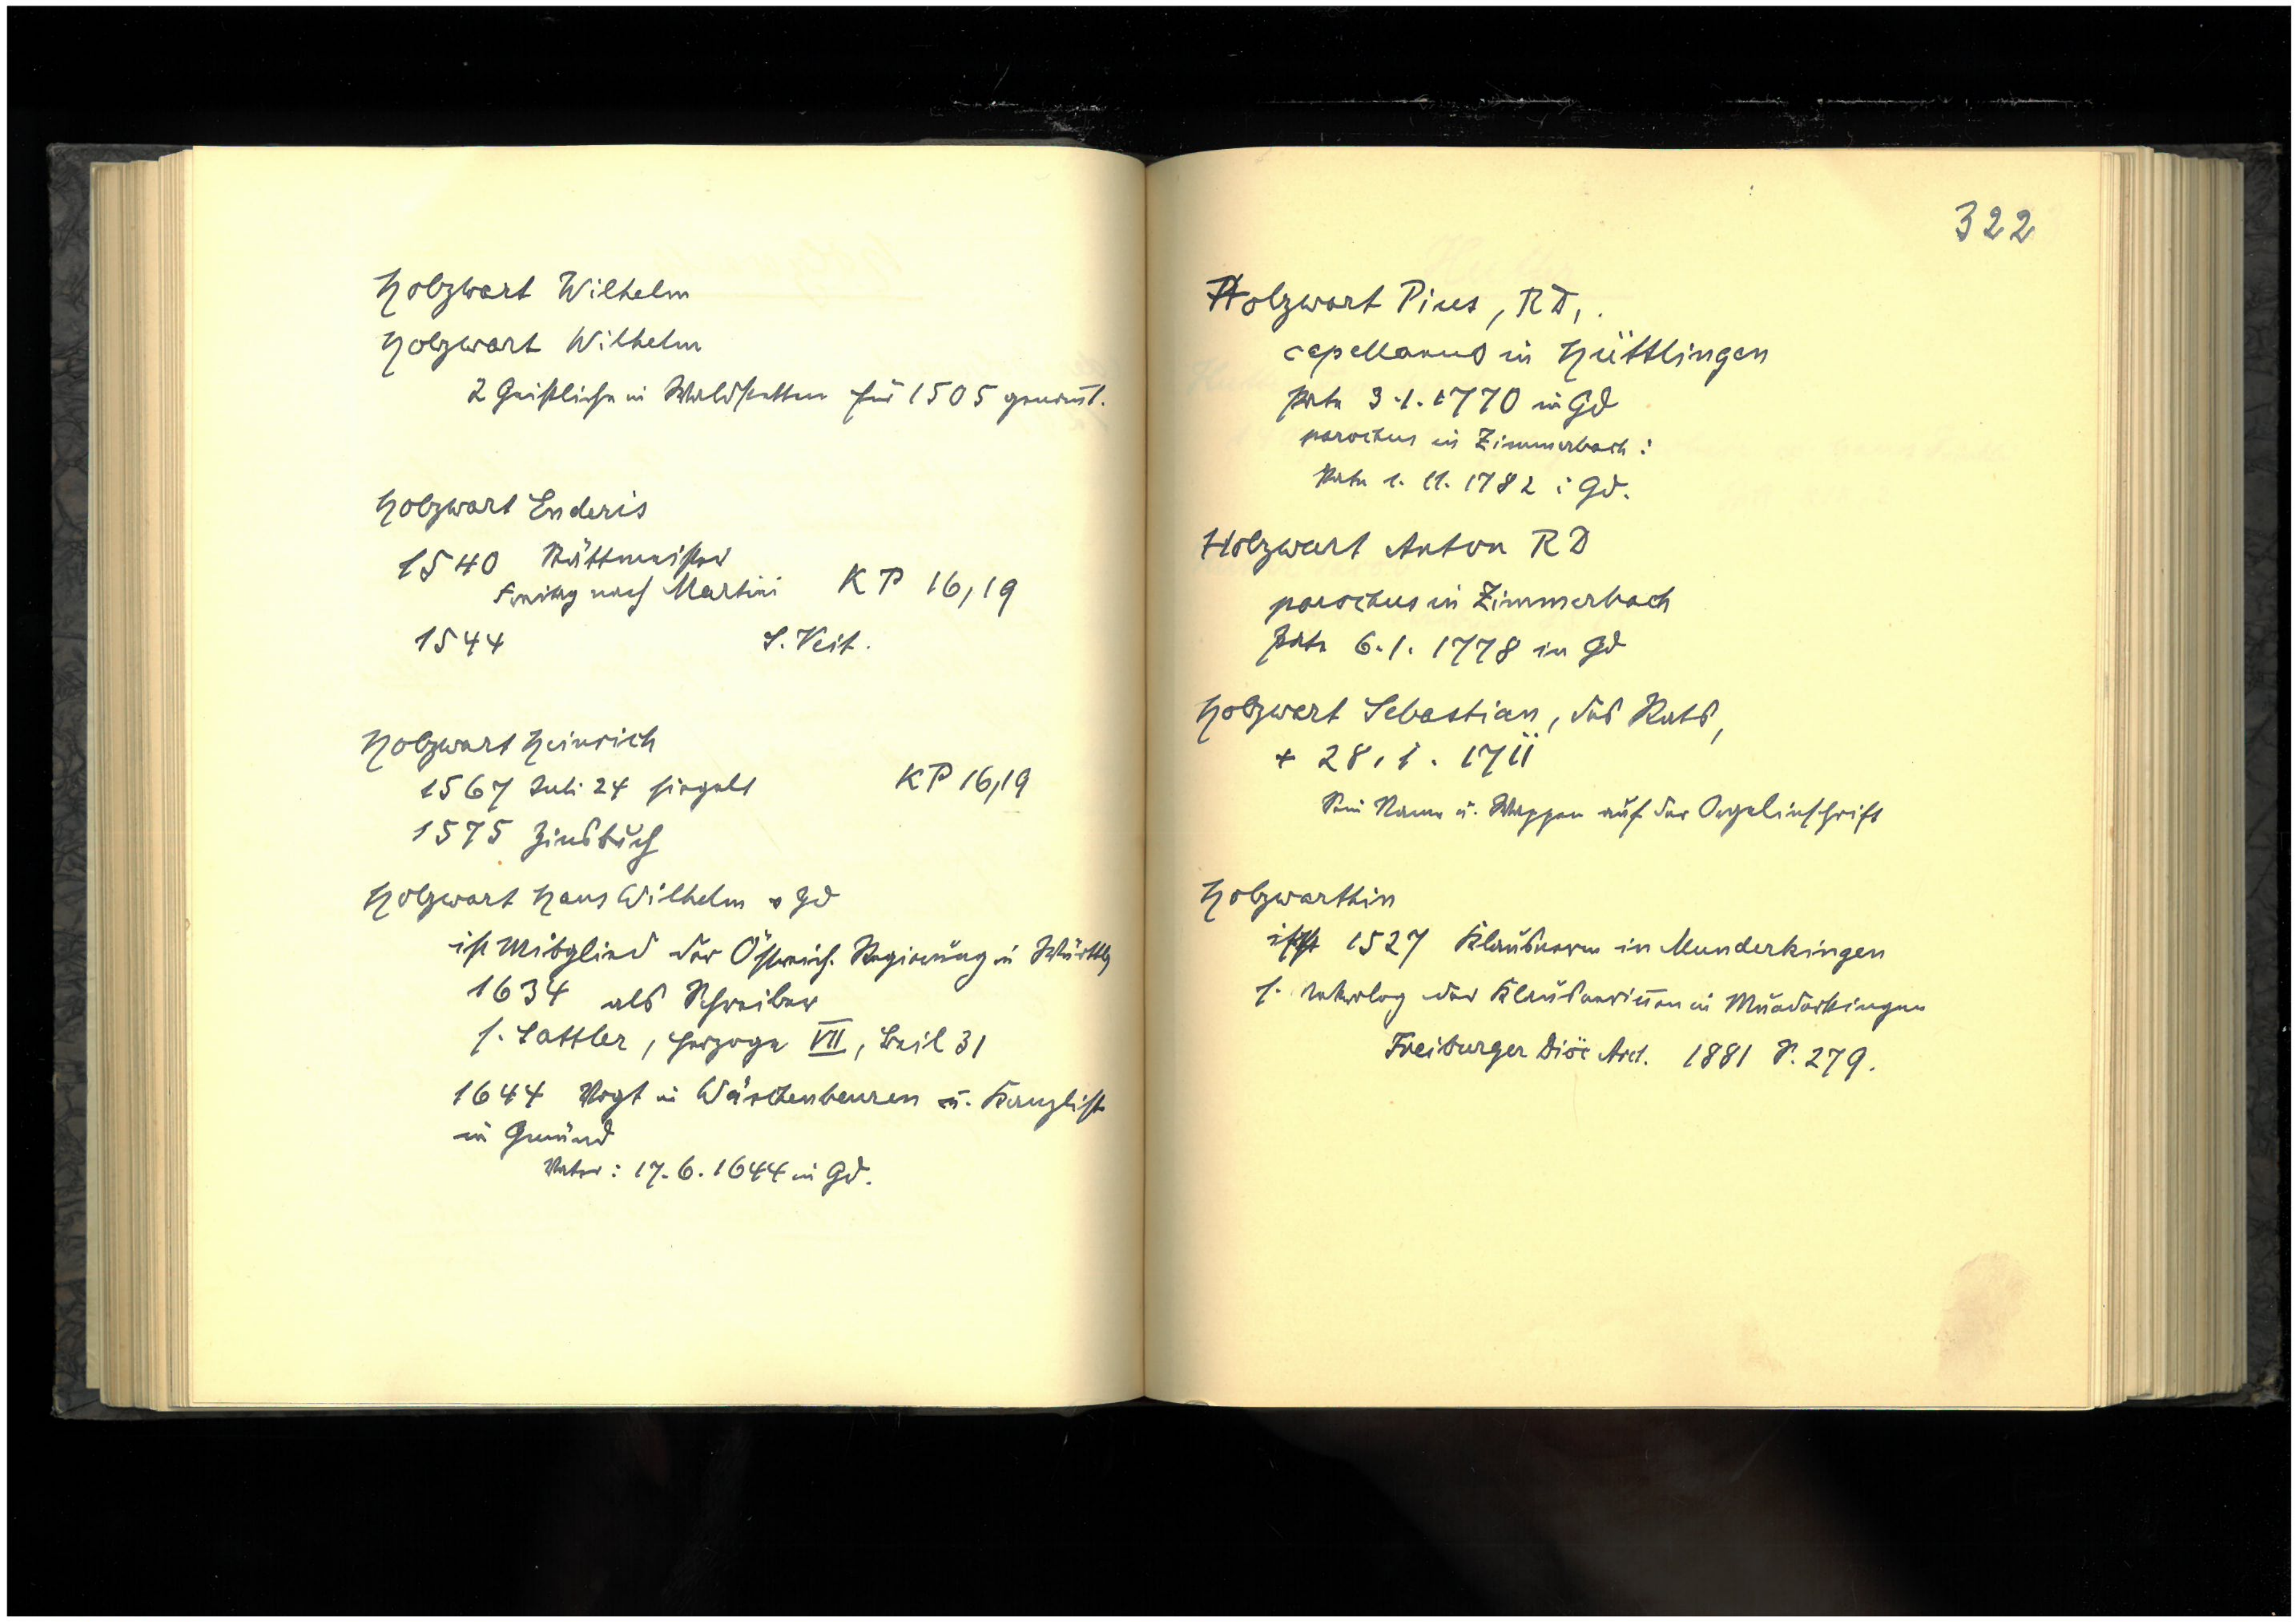 Holzwart Wilhelm
Holzwart Wilhelm
2 Geistliche in Waldstetten für 1505 genannt.
Holzwart Enderis
1540 Stättmeister
Freitag nach Martini KP 16,19
1544 S. Veit.
Holzwart Heinrich
1567 Juli 24 siegelt KP 16,19
1575 Zinsbuch
Holzwart Hans Wilhelm v Gd
ist Mitglied der Östreich. Regierung in Württbg
1634 als Schreiber
s. Sattler, Herzoge VII, Beil 31
1644 Vogt in Wäschenbeuren u. Kanzlist
in Gmünd
Pater: 17.6.1644 in Gd.
322
Holzwart Pius, RD,.
capellanus in Hüttlingen
Pate 3.1.1770 in Gd
parochus in Zimmerbach:
Pate 1.11.1782 i Gd.
Holzwart Anton RD
parochus in Zimmerbach
Pate 6.1.1778 in Gd
Holzwart Sebastian, des Rats,
+ 28.1.1711
Sein Name u. Wappen auf der Orgelinschrift
Holzwarthin
ist 1527 Klausnerin in Munderkingen
s. Nekrolog der Klausnerinnen in Munderkingen
Freiburger Diöc Arch. 1881 S. 279.